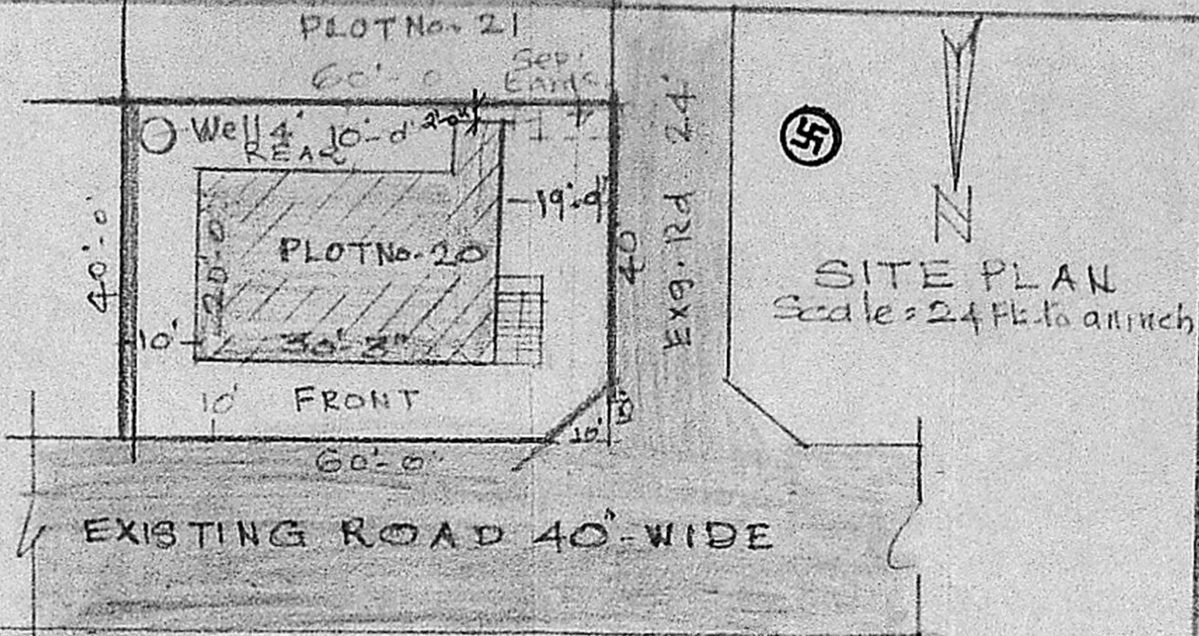 PLOT No. 21
60'-0
Sep.
Well 4' 10'-0" 2'-0"
REAR
19'-9"
PLOT No-20
40'-0"
20'-0"
40
Exg. Rd 24'
10'
30'-3"
10' FRONT
10'
10'
60'-0"
EXISTING ROAD 40'-WIDE
N
SITE PLAN
Scale = 24 Ft. to an inch